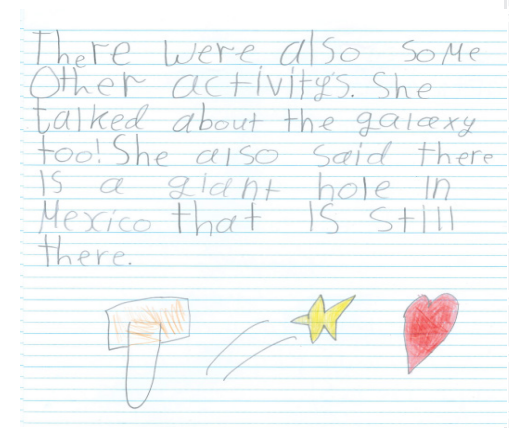 There were also some
Other activity's. She
talked about the galaxy
too! She also said there
is a giant hole in
Mexico that is still
there.